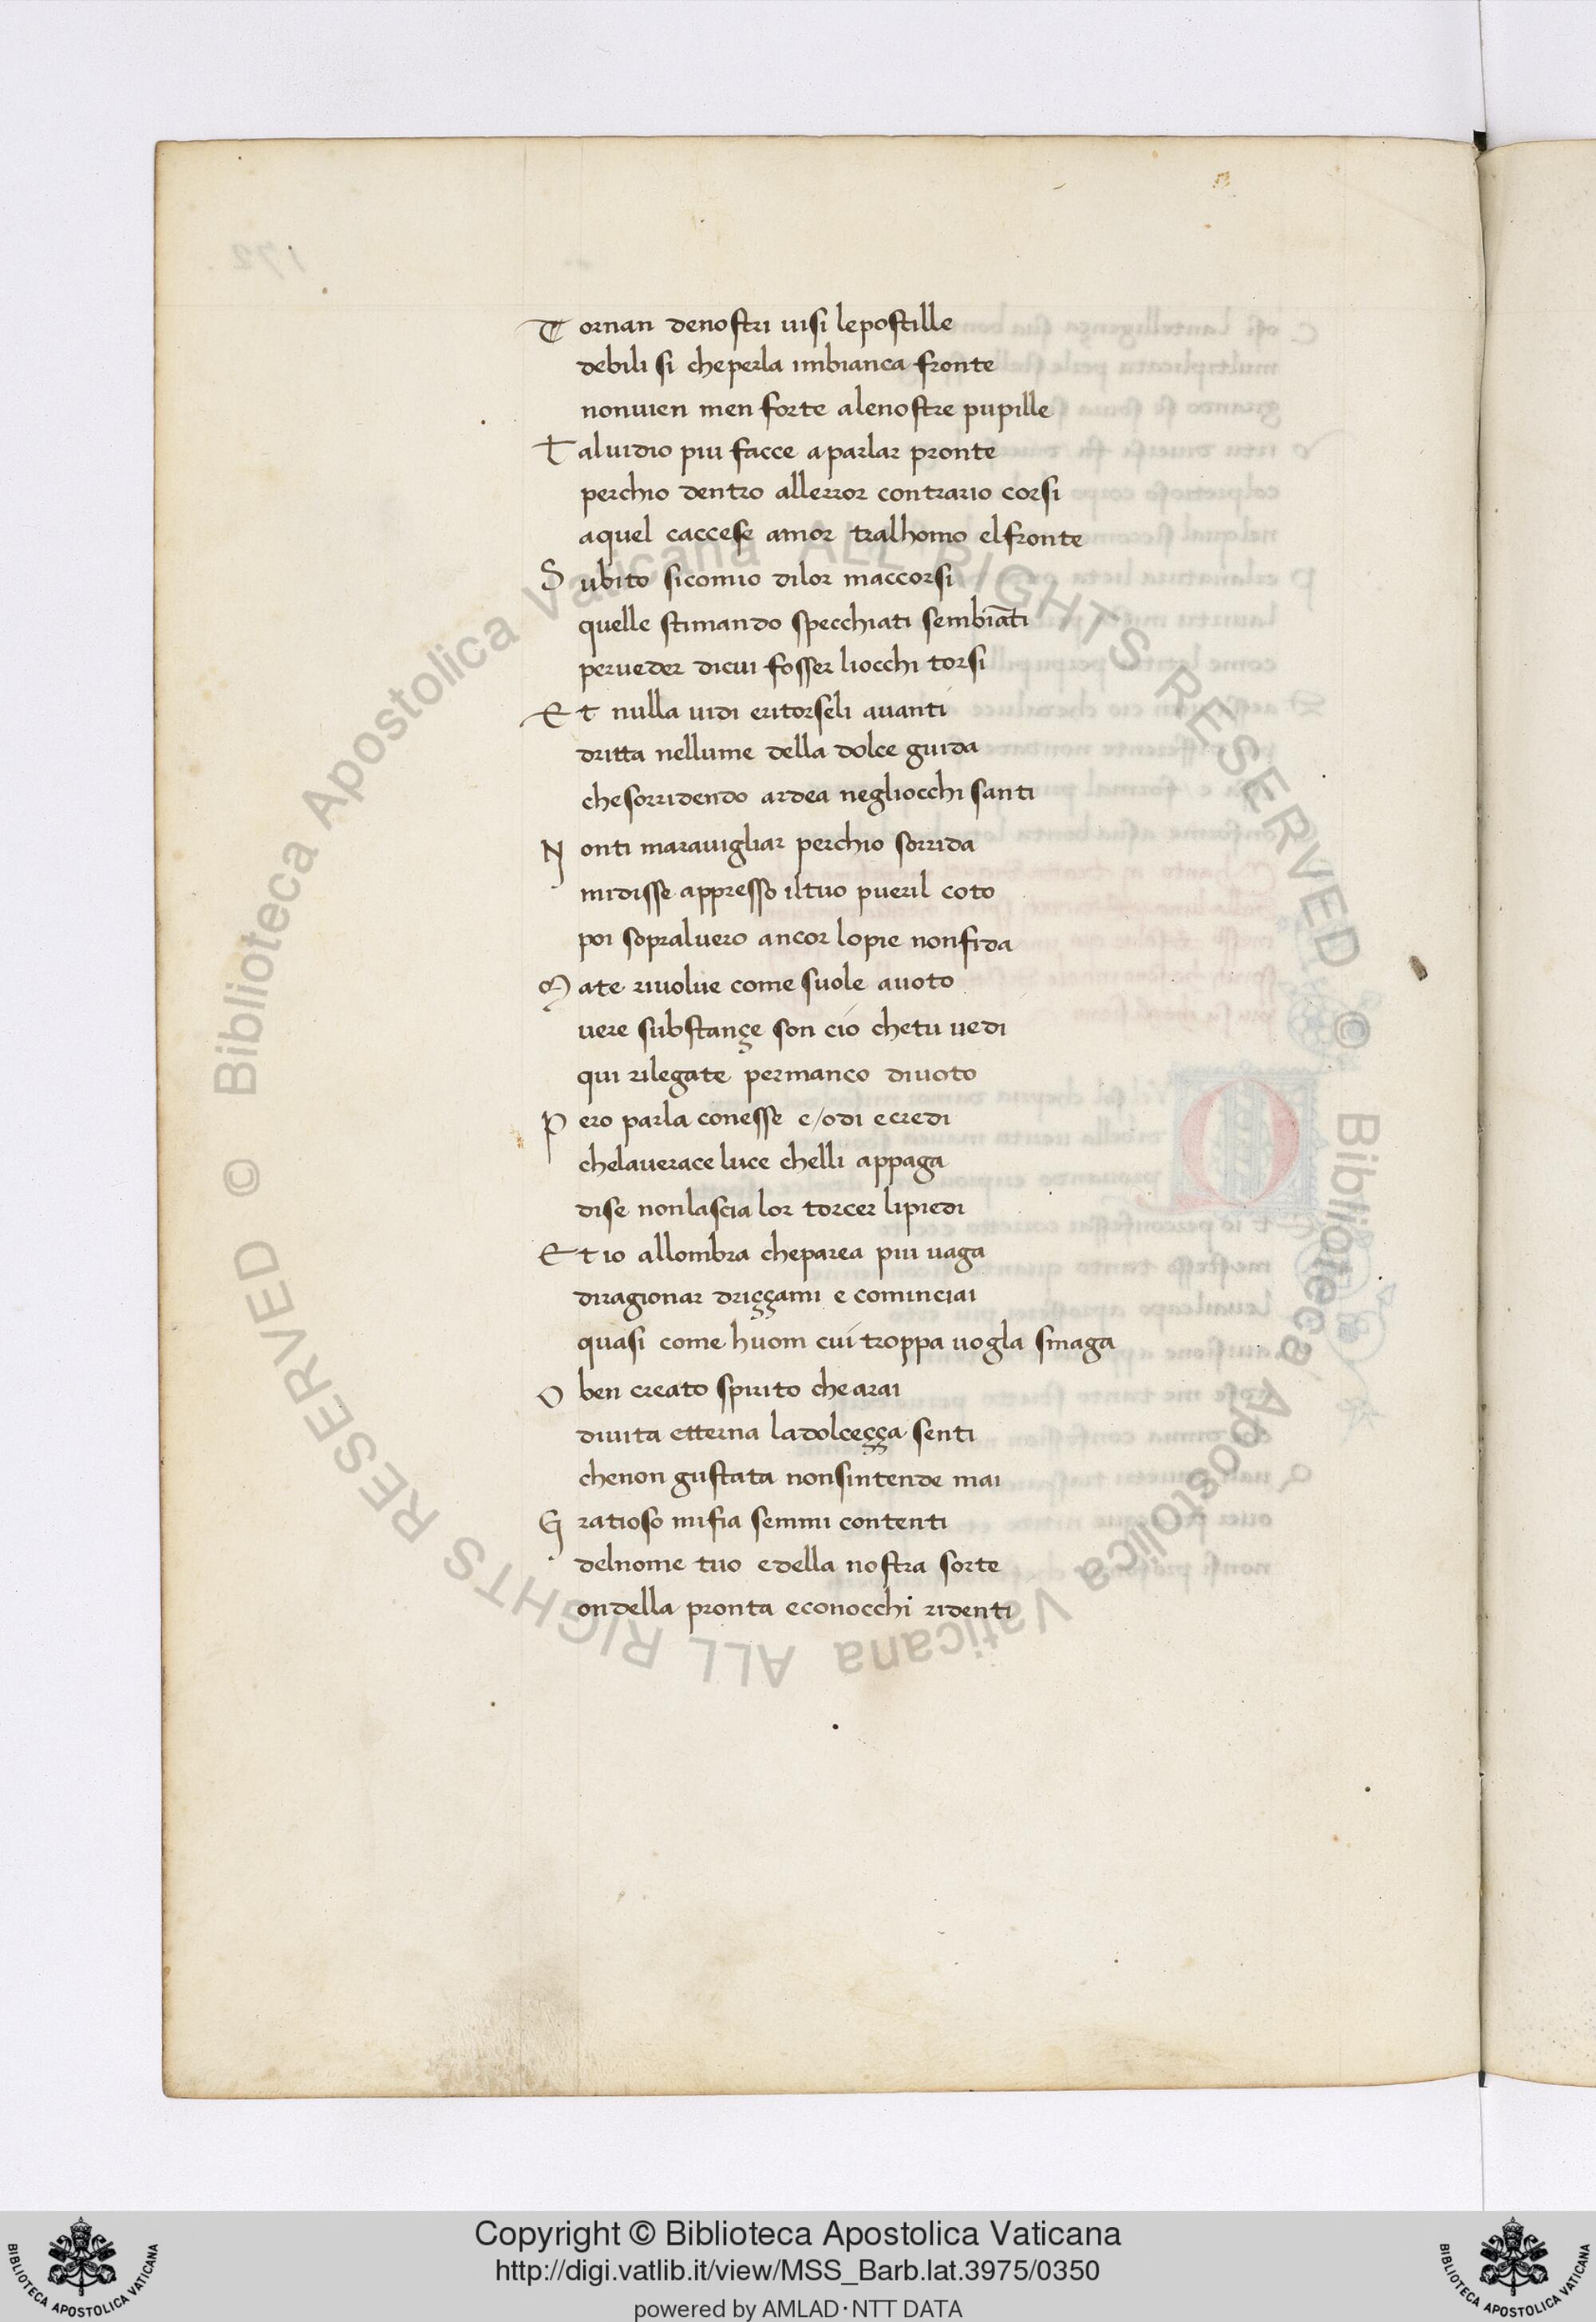 Tornan denostri uisi lepostille
debili si cheperla imbianca fronte
nonuien men forte alenostre pupille
Taluidio piu facce aparlar pronte
perchio dentro allerror contrario corsi
aquel caccese amor tralhomo elfronte
Subito sicomio dilor maccorsi
quelle stimando specchiati sembiāti
perueder dicui fosser liocchi torsi
Et nulla uidi eritorseli auanti
dritta nellume della dolce guida
chesorridendo ardea negliocchi santi
Nonti marauigliar perchio sorrida
midisse appresso iltuo pueril coto
poi sopraluero ancor lopie nonfida
Mate riuolue come suole auoto
uere substançe son ció chetu uedi
qui rilegate permanco diuoto
Pero parla conesse e/odi ecredi
chelauerace luce chelli appaga
dise nonlascia lor torcer lipiedi
Et io allombra cheparea piu uaga
diragionar driççami e cominciai
quasi come huom cui troppa uogla smaga
O ben creato spirito chearai
diuita etterna ladolceçça senti
chenon gustata nonsintende mai
Gratioso mifia semmi contenti
delnome tuo edella nostra sorte
ondella pronta econocchi ridenti
© Biblioteca Apostolica Vaticana ALL RIGHTS RESERVED © Biblioteca Apostolica Vaticana ALL RIGHTS RESERVED
Copyright © Biblioteca Apostolica Vaticana
http://digi.vatlib.it/view/MSS_Barb.lat.3975/0350
powered by AMLAD·NTT DATA
BIBLIOTECA APOSTOLICA VATICANA
BIBLIOTECA APOSTOLICA VATICANA